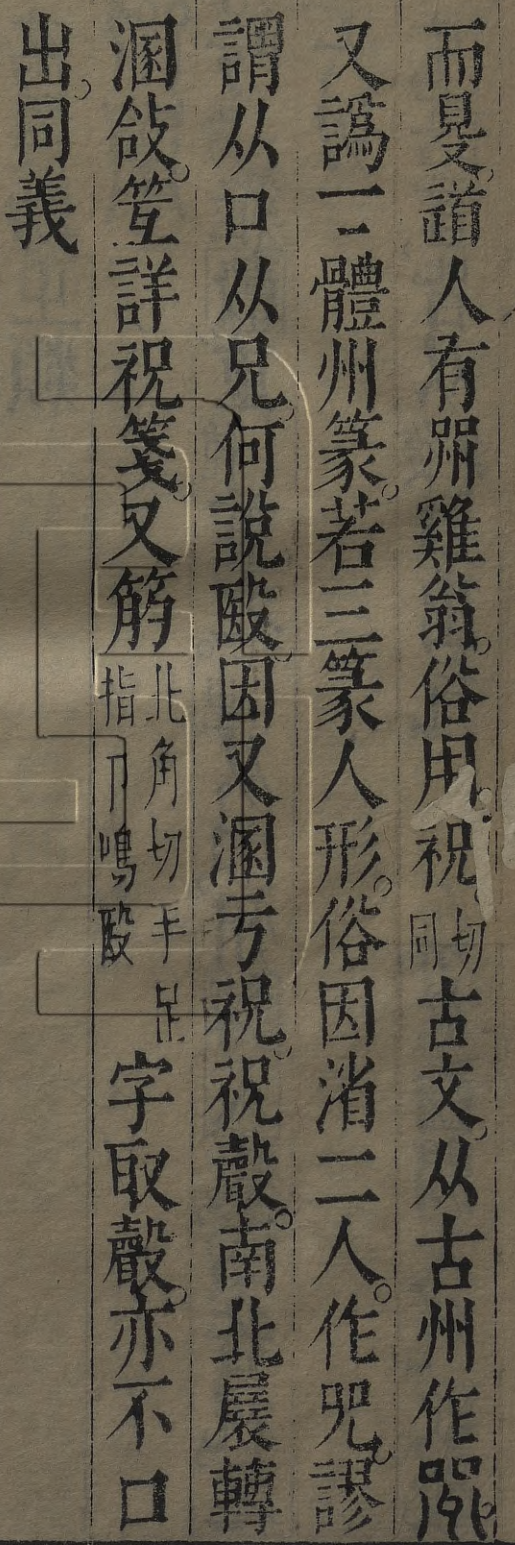 而㚆道人有喌雞翁俗用祝切同古文从古州作
又譌一二體州篆若三篆人形俗因渻二人作咒謬
謂从口从兄何說殹因又溷亏祝祝聲南北展轉
溷㪉笠詳祝箋又筋北角切手足指卩鳴殹字取聲亦不口
出同義